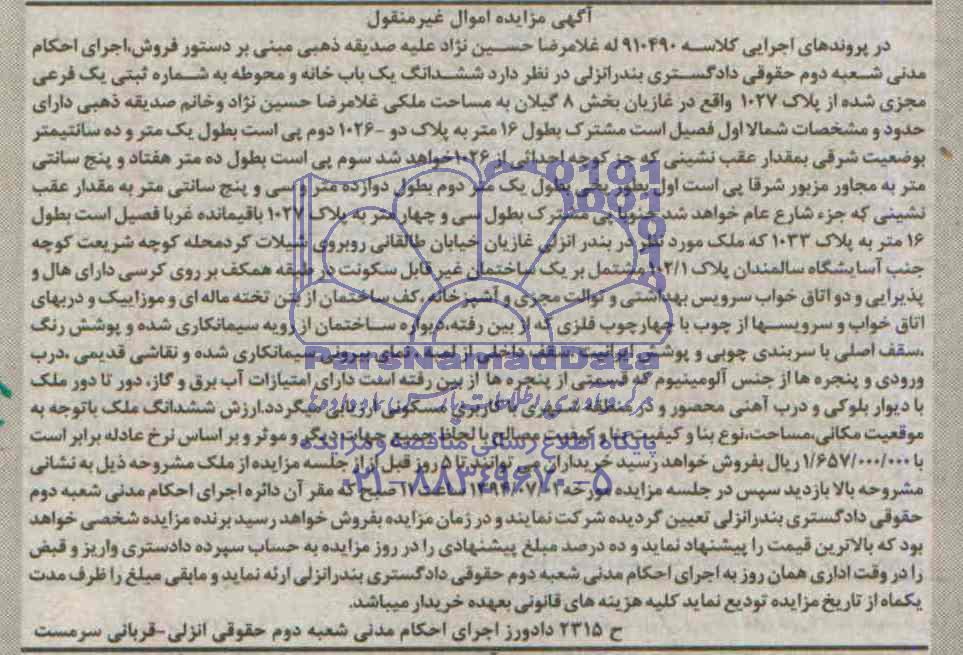 آگهی مزایده اموال غیرمنقول
در پروندهای اجرایی کلاسه ۹۱۰۴۹۰ له غلامرضا حسین نژاد علیه صدیقه ذهبی مبنی بر دستور فروش،اجرای احکام
مدنی شعبه دوم حقوقی دادگستری بندرانزلی در نظر دارد ششدانگ یک باب خانه و محوطه به شماره ثبتی یک فرعی
مجزی شده از پلاک ۱۰۲۷ واقع در غازیان بخش ۸ گیلان به مساحت ملکی غلامرضا حسین نژاد وخانم صدیقه ذهبی دارای
حدود و مشخصات شمالا اول فصیل است مشترک بطول ۱۶ متر به پلاک دو -۱۰۲۶ دوم پی است بطول یک متر و ده سانتیمتر
بوضعیت شرقی بمقدار عقب نشینی که جزء کوچه احداثی از ۱۰۲۶خواهد شد سوم پی است بطول ده متر هفتاد و پنج سانتی
متر به مجاور مزبور شرقا پی است اول بطور یخی بطول یک متر دوم بطول دوازده متر و سی و پنج سانتی متر به مقدار عقب
نشینی که جزء شارع عام خواهد شد جنوبا پی مشترک بطول سی و چهار متر به پلاک ۱۰۲۷ باقیمانده غربا فصیل است بطول
۱۶ متر به پلاک ۱۰۳۳ که ملک مورد نظر در بندر انزلی غازیان خیابان طالقانی روبروی شیلات کردمحله کوچه شریعت کوچه
جنب آسایشگاه سالمندان پلاک ۱۰۲/۱ مشتمل بر یک ساختمان غیر قابل سکونت در طبقه همکف بر روی کرسی دارای هال و
پذیرایی و دو اتاق خواب سرویس بهداشتی و توالت مجزی و آشپزخانه ،کف ساختمان از بتن تخته ماله ای و موزاییک و دربهای
اتاق خواب و سرویسها از چوب با چهارچوب فلزی که از بین رفته،دیواره ساختمان از رویه سیمانکاری شده و پوشش رنگ
،سقف اصلی با سربندی چوبی و پوشش ایرانیت ،سقف داخلی از لمبه ، نمای بیرونی سیمانکاری شده و نقاشی قدیمی ،درب
ورودی و پنجره ها از جنس آلومینیوم که قسمتی از پنجره ها از بین رفته است دارای امتیازات آب برق و گاز، دور تا دور ملک
با دیوار بلوکی و درب آهنی محصور و در منطقه شهری با کاربری مسکونی ارزیابی میگردد.ارزش ششدانگ ملک باتوجه به
موقعیت مکانی،مساحت،نوع بنا و کیفیت بنا و کیفیت مصالح با لحاظ جمیع جهات دیگر و موثر و بر اساس نرخ عادله برابر است
با ۱/۶۵۷/۰۰۰/۰۰۰ ریال بفروش خواهد رسید خریداران می توانند تا ۵ روز قبل از از جلسه مزایده از ملک مشروحه ذیل به نشانی
مشروحه بالا بازدید سپس در جلسه مزایده مورخه ساعت ۱۱ صبح که مقر آن دائره اجرای احکام مدنی شعبه دوم
حقوقی دادگستری بندرانزلی تعیین گردیده شرکت نمایند و در زمان مزایده بفروش خواهد رسید برنده مزایده شخصی خواهد
بود که بالاترین قیمت را پیشنهاد نماید و ده درصد مبلغ پیشنهادی را در روز مزایده به حساب سپرده دادستری واریز و قبض
را در وقت اداری همان روز به اجرای احکام مدنی شعبه دوم حقوقی دادگستری بندرانزلی ارئه نماید و مابقی مبلغ را ظرف مدت
یکماه از تاریخ مزایده تودیع نماید کلیه هزینه های قانونی بعهده خریدار میباشد.
ح ۲۳۱۵ دادورز اجرای احکام مدنی شعبه دوم حقوقی انزلی-قربانی سرمست
ParsNamadData
پایگاه اطلاع رسانی مناقصه و مزایده
۰۲۱-۸۸۳۴۹۶۷۰-۵